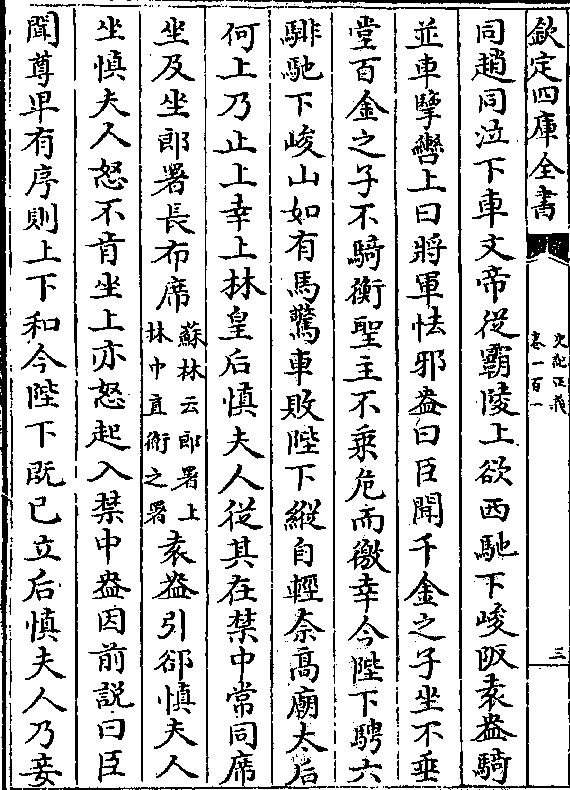 欽定四庫全書
史記正義
卷一百一
三
同趙同泣下車文帝從霸陵上欲西馳下峻阪袁盎騎
並車擥轡上曰將軍怯邪盎曰臣聞千金之子坐不垂
堂百金之子不騎衡聖主不乘危而徼幸今陛下騁六
騑馳下峻山如有馬驚車敗陛下縱自輕柰髙廟太后
何上乃止上幸上林皇后慎夫人從其在禁中常同席
坐及坐郎署長布席蘇林云郎署上林中直衛之署袁盎引郤慎夫人
坐慎夫人怒不肯坐上亦怒起入禁中盎因前説曰臣
聞尊卑有序則上下和今陛下既已立后慎夫人乃妾